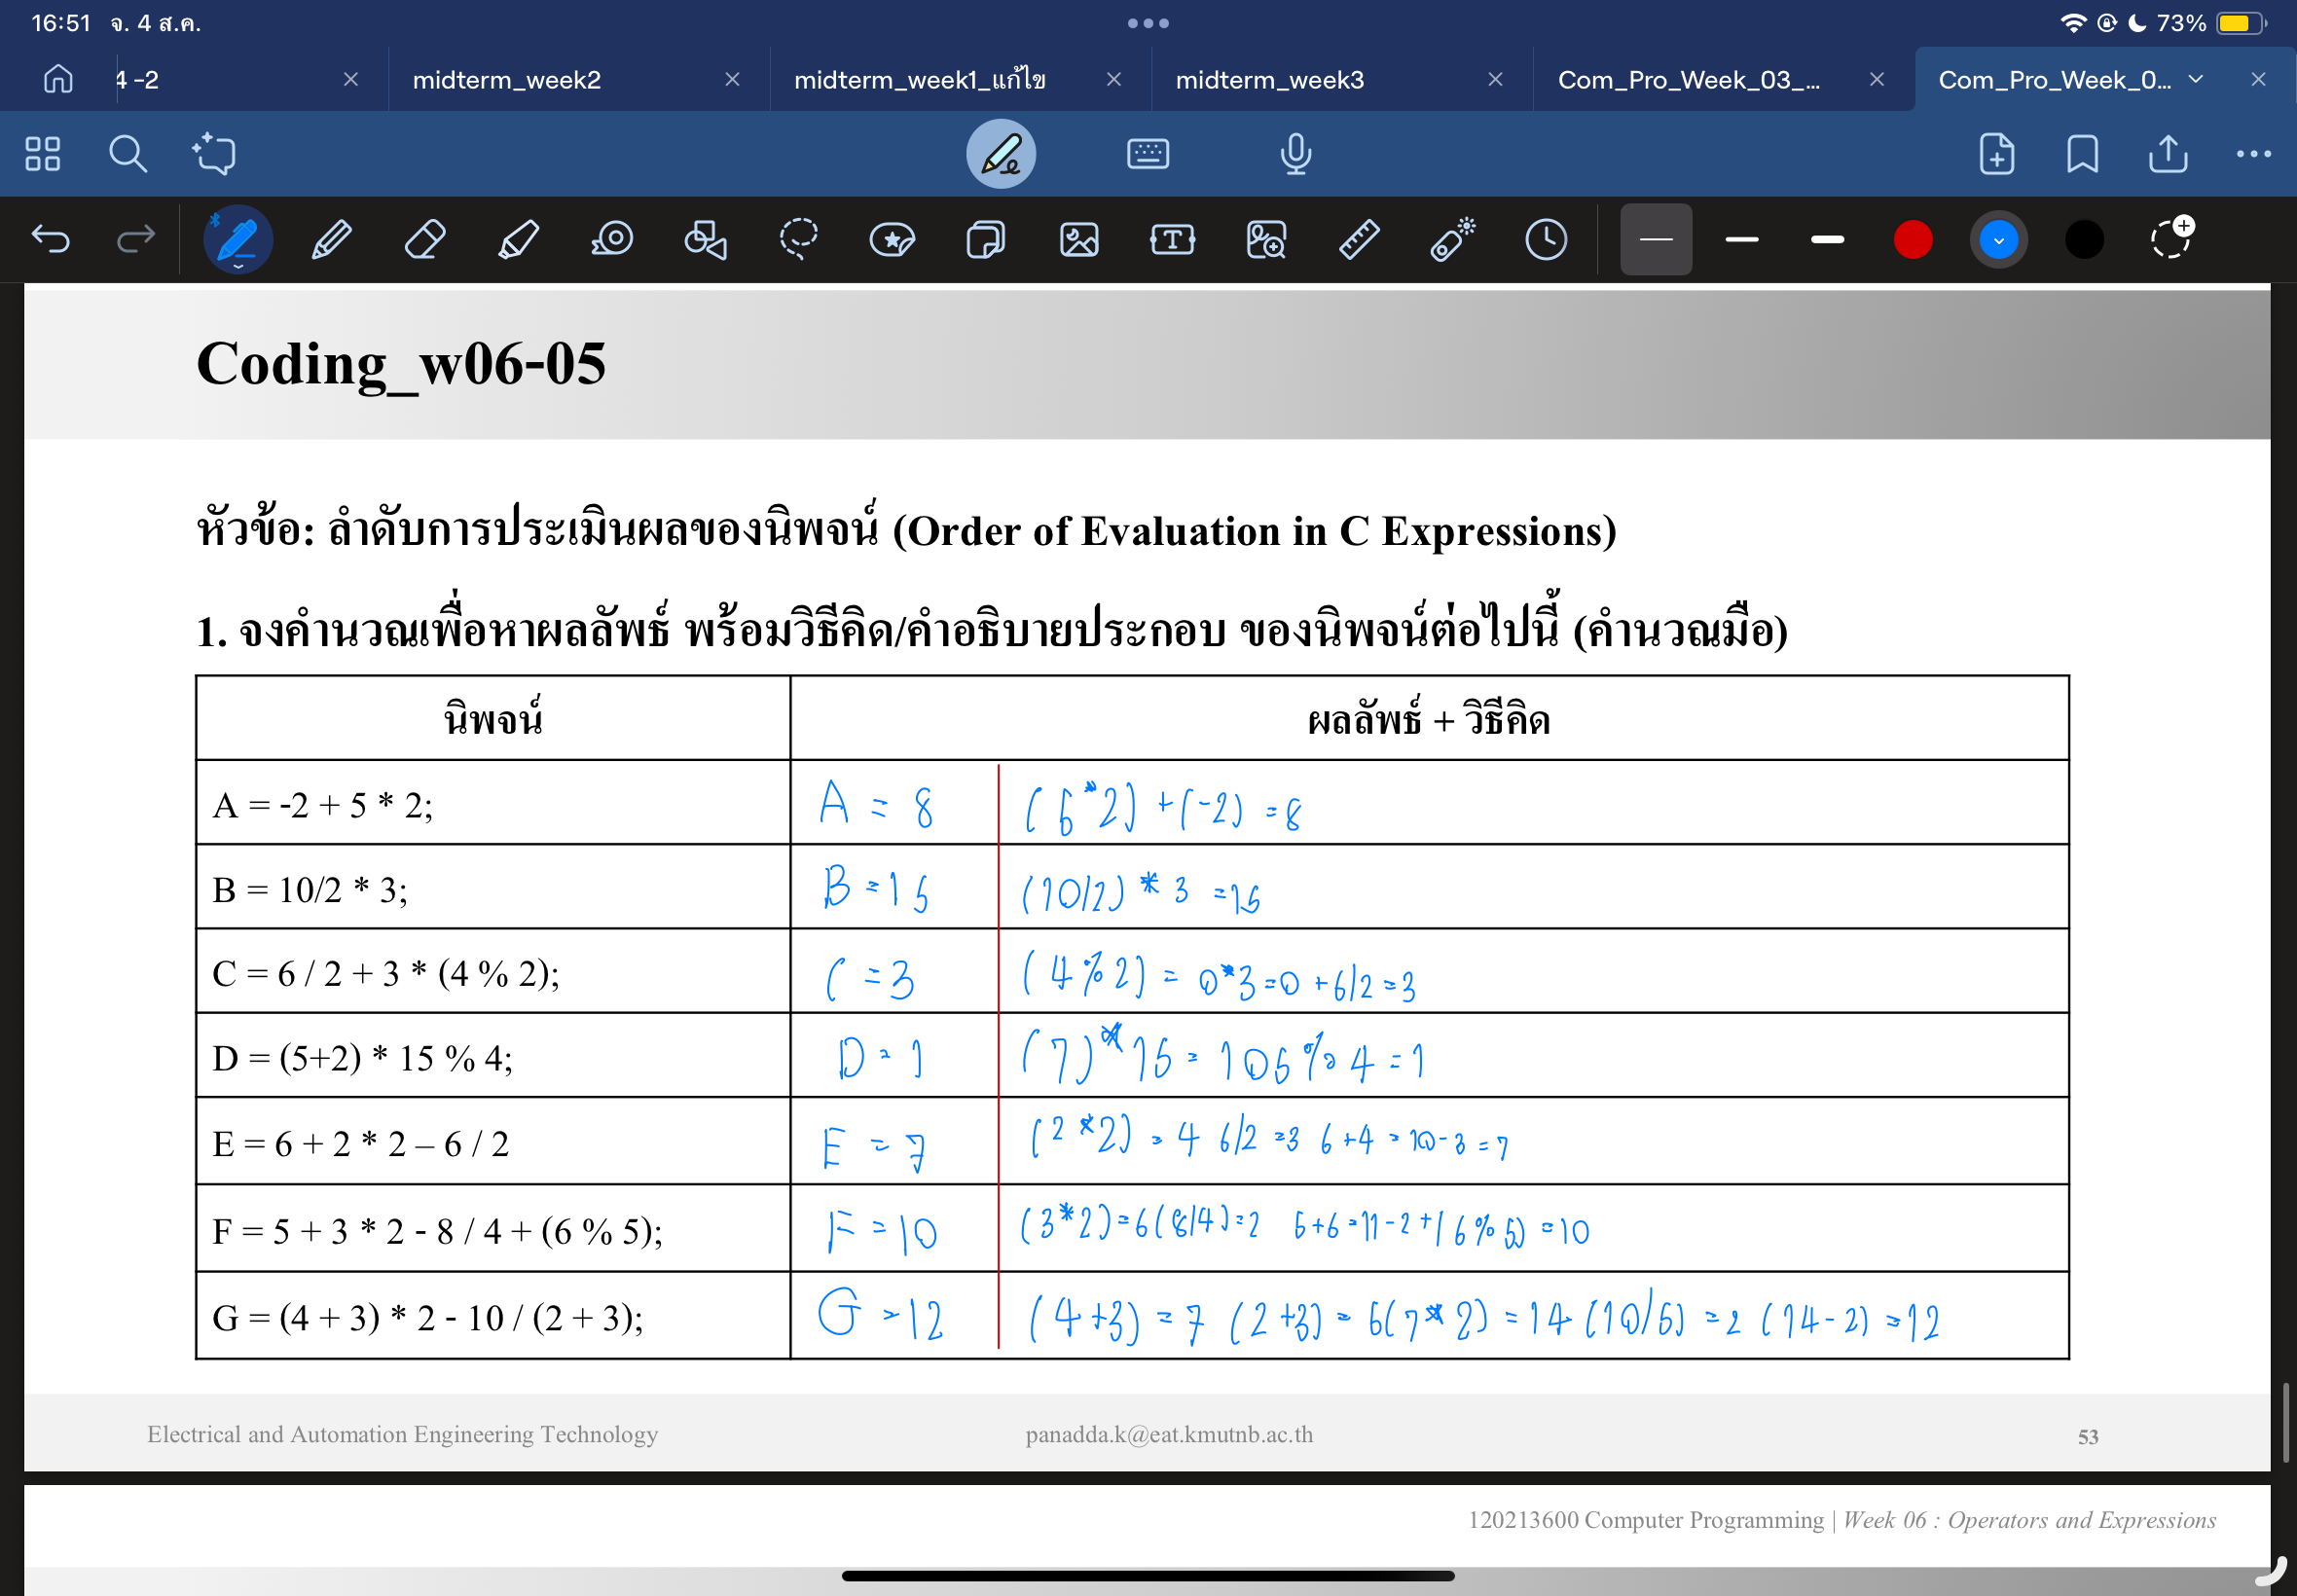 16:51 จ. 4 ส.ค. 73%
4 -2 midterm_week2 midterm_week1_แก้ไข midterm_week3 Com_Pro_Week_03_... Com_Pro_Week_0...
Coding_w06-05
หัวข้อ: ลำดับการประเมินผลของนิพจน์ (Order of Evaluation in C Expressions)
1. จงคำนวณเพื่อหาผลลัพธ์ พร้อมวิธีคิด/คำอธิบายประกอบ ของนิพจน์ต่อไปนี้ (คำนวณมือ)
นิพจน์ ผลลัพธ์ + วิธีคิด
A = -2 + 5 * 2; A = 8 (5*2) +(-2) = 8
B = 10/2 * 3; B = 15 (10/2) * 3 = 15
C = 6 / 2 + 3 * (4 % 2); C = 3 (4%2) = 0*3=0 +6/2=3
D = (5+2) * 15 % 4; D = 1 (7)*15 = 105%4 = 1
E = 6 + 2 * 2 – 6 / 2 E = 7 (2*2) = 4 6/2 =3 6+4 = 10-3 =7
F = 5 + 3 * 2 - 8 / 4 + (6 % 5); F = 10 (3*2)=6(8/4)=2 5+6=11-2+(6%5) =10
G = (4 + 3) * 2 - 10 / (2 + 3); G = 12 (4+3) = 7 (2+3) = 5(7*2) = 14 (10/5) =2 (14-2) =12
Electrical and Automation Engineering Technology panadda.k@eat.kmutnb.ac.th 53
120213600 Computer Programming | Week 06 : Operators and Expressions